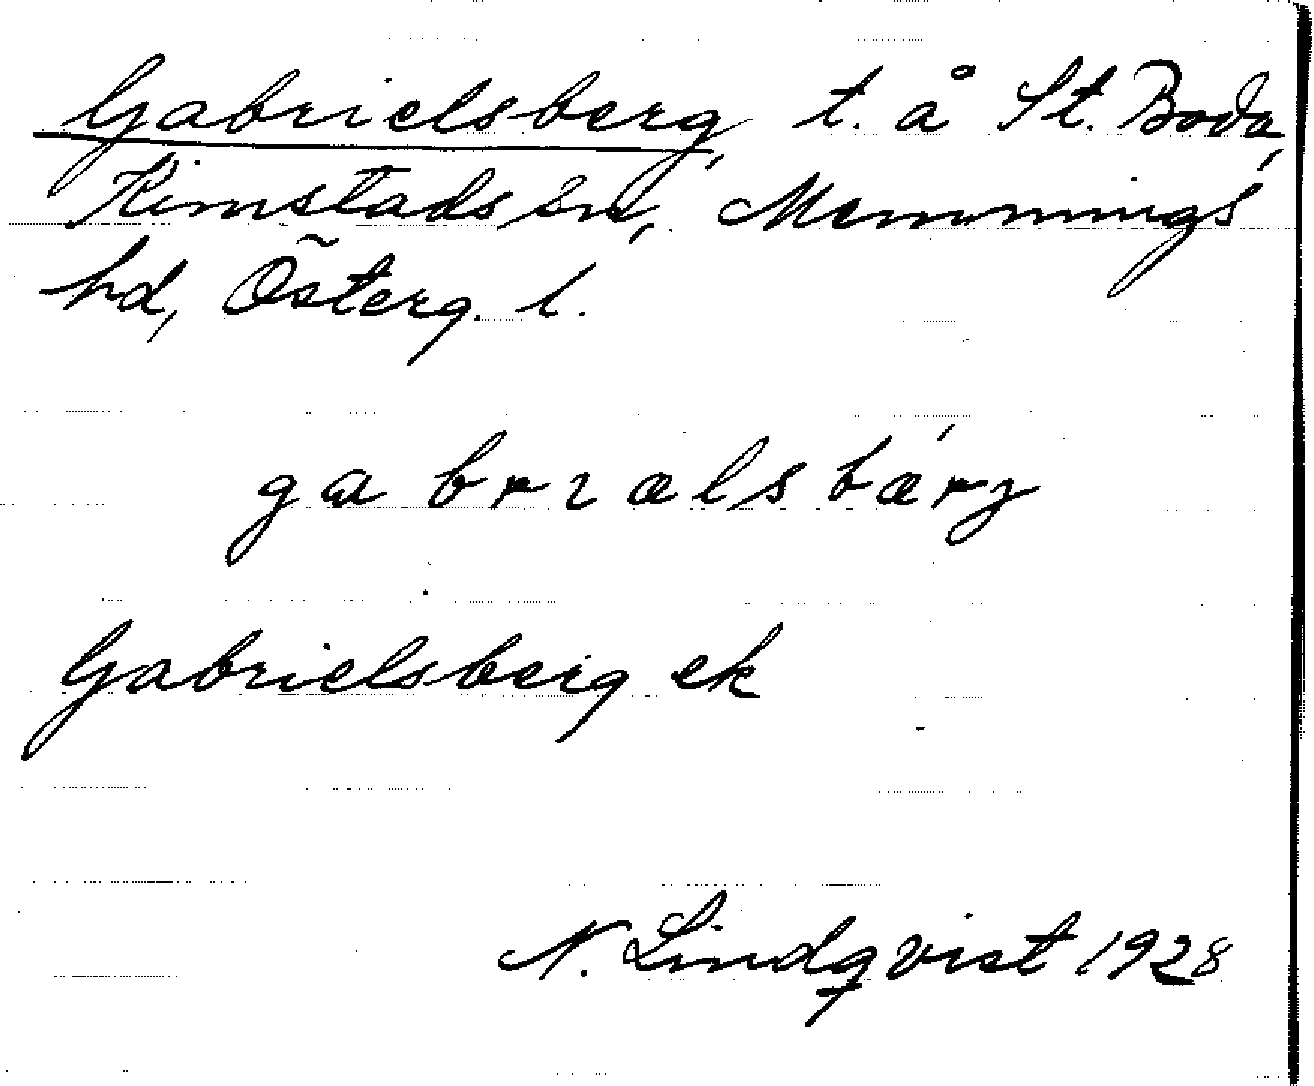 Gabrielsberg, t. å St. Boda,
Kimstads sn, Memmings
hd, Österg. l.
gabrıælsbærj
Gabrielsberg ek
N. Lindqvist 1928